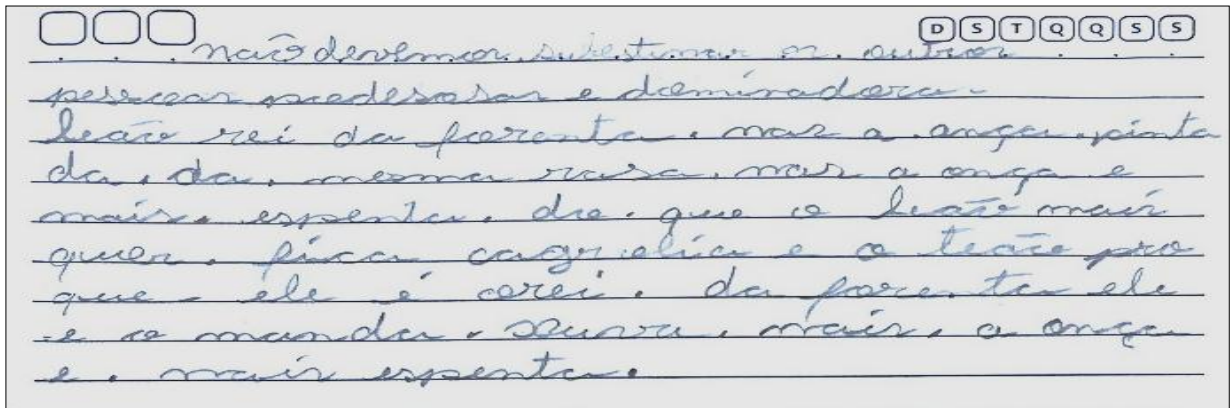 D S T Q Q S S
não devemos. subestimar os outros
pesscoas predesosas e dominadora-
leão rei da foresta. mas a onça. pinta
da. da. mesma rasa. mas a onça e
mais. espenta. do. que o leão mais
quer. fica cagr elia e o leão pro
que - ele é orei. da foresta ele
-e o manda. chuva. mais. a onça
e. mais espenta.